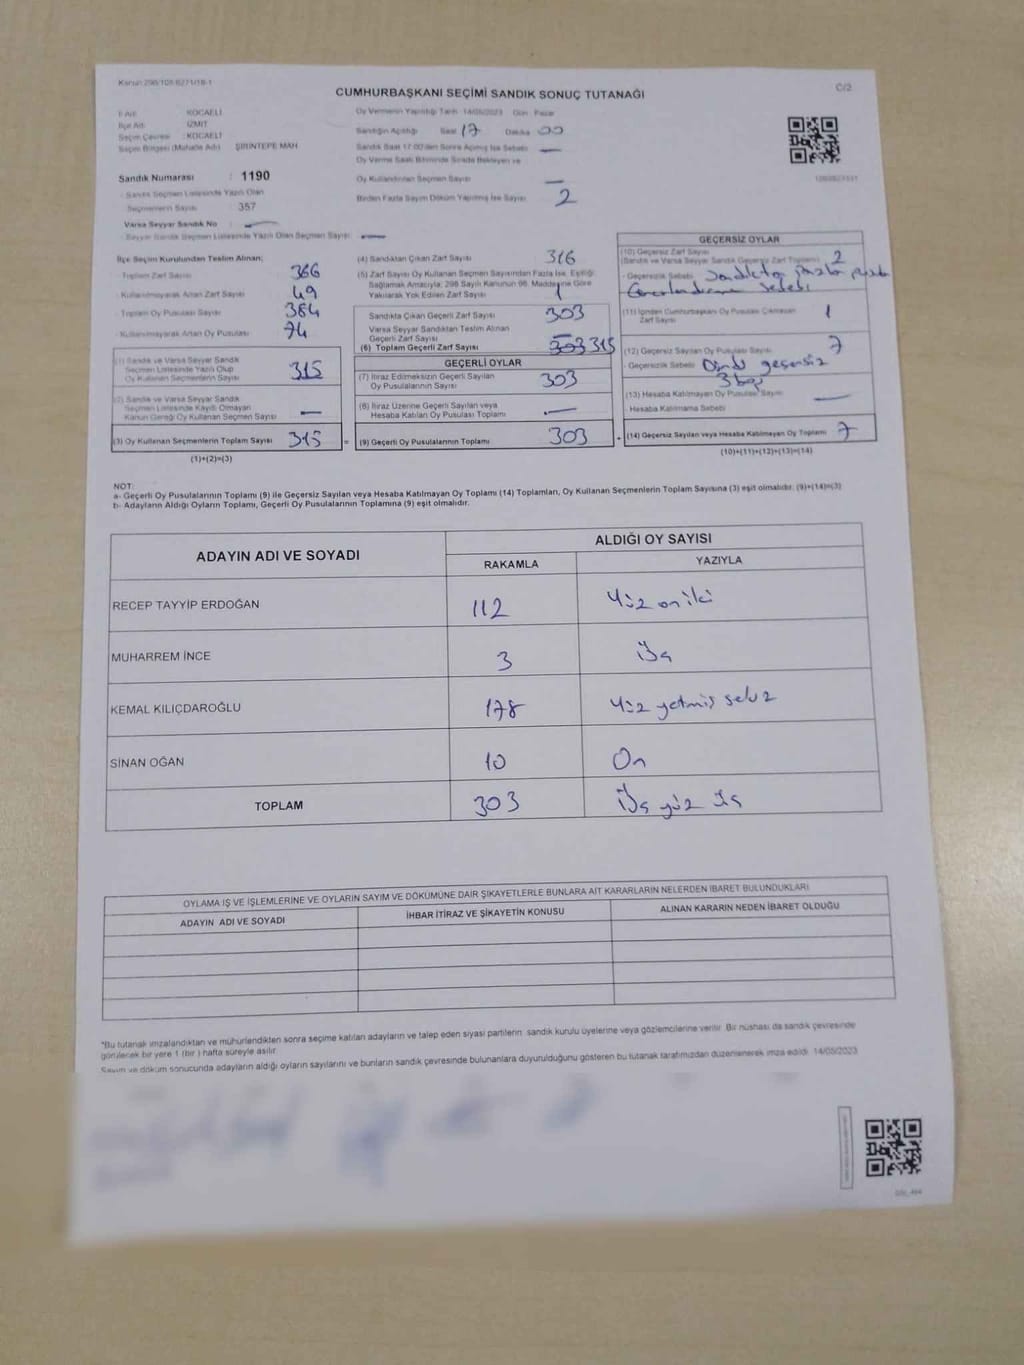 Kanun 298/105-6271/18-1
C/2
CUMHURBAŞKANI SEÇİMİ SANDIK SONUÇ TUTANAĞI
İl Adı : KOCAELİ
İlçe Adı : İZMİT
Seçim Çevresi : KOCAELİ
Seçim Bölgesi (Mahalle Adı) : ŞİRİNTEPE MAH
Sandık Numarası : 1190
Sandık Seçmen Listesinde Yazılı Olan
Seçmenlerin Sayısı : 357
Varsa Seyyar Sandık No : —
Seyyar Sandık Seçmen Listesinde Yazılı Olan Seçmen Sayısı : —
Oy Vermenin Yapıldığı Tarih 14/05/2023 Gün Pazar
Sandığın Açıldığı Saat 17 Dakika 00
Sandık Saat 17:00'den Sonra Açılmış İse Sebebi —
Oy Verme Saati Bitiminde Sırada Bekleyen ve
Oy Kullandırılan Seçmen Sayısı —
Birden Fazla Sayım Döküm Yapılmış İse Sayısı 2
İlçe Seçim Kurulundan Teslim Alınan;
Toplam Zarf Sayısı 366
Kullanılmayarak Artan Zarf Sayısı 49
Toplam Oy Pusulası Sayısı 384
Kullanılmayarak Artan Oy Pusulası 74
(1) Sandık ve Varsa Seyyar Sandık
Seçmen Listesinde Yazılı Olup
Oy Kullanan Seçmenlerin Sayısı 315
(2) Sandık ve Varsa Seyyar Sandık
Seçmen Listesinde Kaydı Olmayan
Kanun Gereği Oy Kullanan Seçmen Sayısı —
(3) Oy Kullanan Seçmenlerin Toplam Sayısı 315
(1)+(2)=(3)
(4) Sandıktan Çıkan Zarf Sayısı 316
(5) Zarf Sayısı Oy Kullanan Seçmen Sayısından Fazla İse, Eşitliği
Sağlamak Amacıyla; 298 Sayılı Kanunun 98. Maddesine Göre
Yakılarak Yok Edilen Zarf Sayısı 1
Sandıkta Çıkan Geçerli Zarf Sayısı 303
Varsa Seyyar Sandıktan Teslim Alınan
Geçerli Zarf Sayısı —
(6) Toplam Geçerli Zarf Sayısı 303 315
GEÇERLİ OYLAR
(7) İtiraz Edilmeksizin Geçerli Sayılan
Oy Pusulalarının Sayısı 303
(8) İtiraz Üzerine Geçerli Sayılan veya
Hesaba Katılan Oy Pusulası Toplamı —
= (9) Geçerli Oy Pusulalarının Toplamı 303
GEÇERSİZ OYLAR
(10) Geçersiz Zarf Sayısı
(Sandık ve Varsa Seyyar Sandık Geçersiz Zarf Toplamı) 2
- Geçersizlik Sebebi
(11) İçinden Cumhurbaşkanı Oy Pusulası Çıkmayan
Zarf Sayısı 1
(12) Geçersiz Sayılan Oy Pusulası Sayısı 7
- Geçersizlik Sebebi geçersiz
3 boş
(13) Hesaba Katılmayan Oy Pusulası Sayısı —
Hesaba Katılmama Sebebi
+ (14) Geçersiz Sayılan veya Hesaba Katılmayan Oy Toplamı 7
(10)+(11)+(12)+(13)=(14)
NOT:
a- Geçerli Oy Pusulalarının Toplamı (9) ile Geçersiz Sayılan veya Hesaba Katılmayan Oy Toplamı (14) Toplamları, Oy Kullanan Seçmenlerin Toplam Sayısına (3) eşit olmalıdır. (9)+(14)=(3)
b- Adayların Aldığı Oyların Toplamı, Geçerli Oy Pusulalarının Toplamına (9) eşit olmalıdır.
ADAYIN ADI VE SOYADI
ALDIĞI OY SAYISI
RAKAMLA YAZIYLA
RECEP TAYYİP ERDOĞAN 112 Yüz on iki
MUHARREM İNCE 3 Üç
KEMAL KILIÇDAROĞLU 178 Yüz yetmiş sekiz
SİNAN OĞAN 10 On
TOPLAM 303 Üç yüz üç
OYLAMA İŞ VE İŞLEMLERİNE VE OYLARIN SAYIM VE DÖKÜMÜNE DAİR ŞİKAYETLERLE BUNLARA AİT KARARLARIN NELERDEN İBARET BULUNDUKLARI
ADAYIN ADI VE SOYADI İHBAR İTİRAZ VE ŞİKAYETİN KONUSU ALINAN KARARIN NEDEN İBARET OLDUĞU
*Bu tutanak imzalandıktan ve mühürlendikten sonra seçime katılan adayların ve talep eden siyasi partilerin sandık kurulu üyelerine veya gözlemcilerine verilir. Bir nüshası da sandık çevresinde
görülecek bir yere 1 (bir) hafta süreyle asılır.
Sayım ve döküm sonucunda adayların aldığı oyların sayılarını ve bunların sandık çevresinde bulunanlara duyurulduğunu gösteren bu tutanak tarafımızdan düzenlenerek imza edildi. 14/05/2023